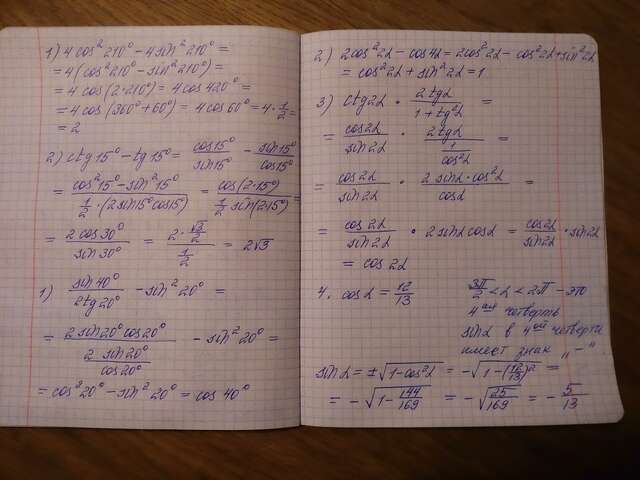 1) 4cos²210° - 4sin²210° =
= 4(cos²210° - sin²210°) =
= 4cos(2·210°) = 4cos420° =
= 4cos(360°+60°) = 4cos60° = 4·1/2 =
= 2
2) ctg15° - tg15° = cos15°/sin15° - sin15°/cos15° =
= (cos²15° - sin²15°)/(1/2·(2sin15°cos15°)) = cos(2·15°)/(1/2 sin(2·15°)) =
= 2cos30°/sin30° = (2·√3/2)/(1/2) = 2√3
1) sin40°/2tg20° - sin²20° =
= 2sin20°cos20°/(2sin20°/cos20°) - sin²20° =
= cos²20° - sin²20° = cos40°
2) 2cos²2α - cos4α = 2cos²2α - cos²2α + sin²2α
= cos²2α + sin²2α = 1
3) ctg2α · 2tgα/(1+tg²α) =
= cos2α/sin2α · 2tgα/(1/cos²α) =
= cos2α/sin2α · 2sinα·cos²α/cosα =
= cos2α/sin2α · 2sinαcosα = cos2α/sin2α · sin2α
= cos2α
4. cosα = 12/13 3π/2 < α < 2π - это
4ая четверть
sinα в 4ой четверти
имеет знак „-"
sinα = ±√(1-cos²α) = -√(1-(12/13)²) =
= -√(1-144/169) = -√(25/169) = -5/13